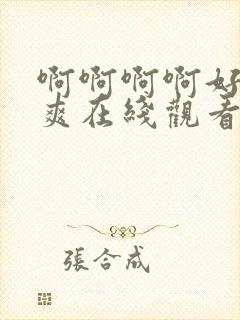 啊啊啊啊好
爽在綫觀看
張合成